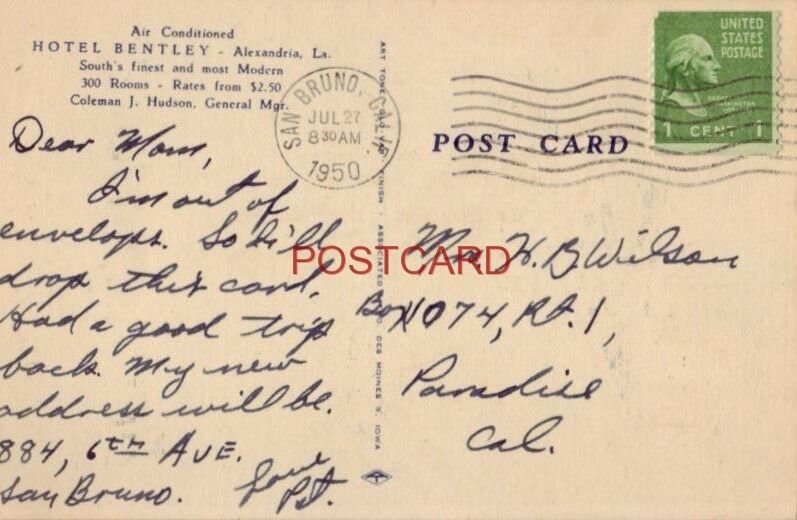 Air Conditioned
HOTEL BENTLEY - Alexandria, La.
South's finest and most Modern
300 Rooms - Rates from $2.50
Coleman J. Hudson, General Mgr.
SAN BRUNO, CALIF.
JUL 27
8 30 AM
1950
UNITED
STATES
POSTAGE
1 CENT 1
POST CARD
Dear Mom,
I'm out of
envelops. So I'll
drop this card.
Had a good trip
back. My new
address will be.
884, 6TH AVE.
San Bruno.
Love
ASSOCIATED
DES MOINES 9, IOWA
H. B. Wilson
Box 1074, Rt. 1,
Paradise
Cal.
POSTCARD